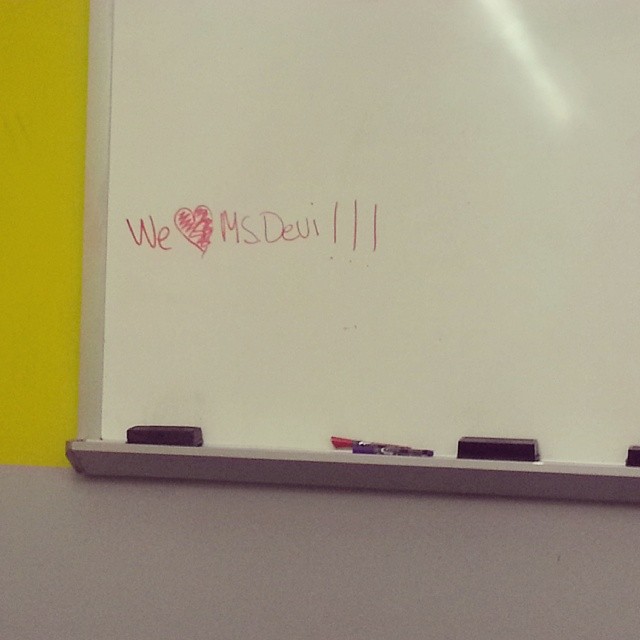 We ♥ Ms Devi!!!